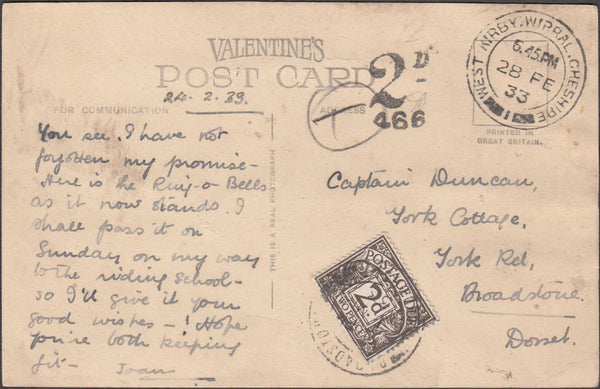 VALENTINE'S
POST CARD
FOR COMMUNICATION
ADDRESS
24.2.39.
2D
466
T
WEST KIRBY, WIRRAL, CHESHIRE
6.45 PM
28 FE
33
1
PRINTED IN
GREAT BRITAIN.
THIS IS A REAL PHOTOGRAPH
You see I have not
forgotten my promise -
Here is the Ring-o-Bells
as it now stands. I
shall pass it on
Sunday on my way
to the riding school -
so I'll give it your
good wishes - ! Hope
you're both keeping
fit - Joan
Captain Duncan,
York Cottage,
York Rd,
Broadstone.
Dorset.
POSTAGE DUE
2d